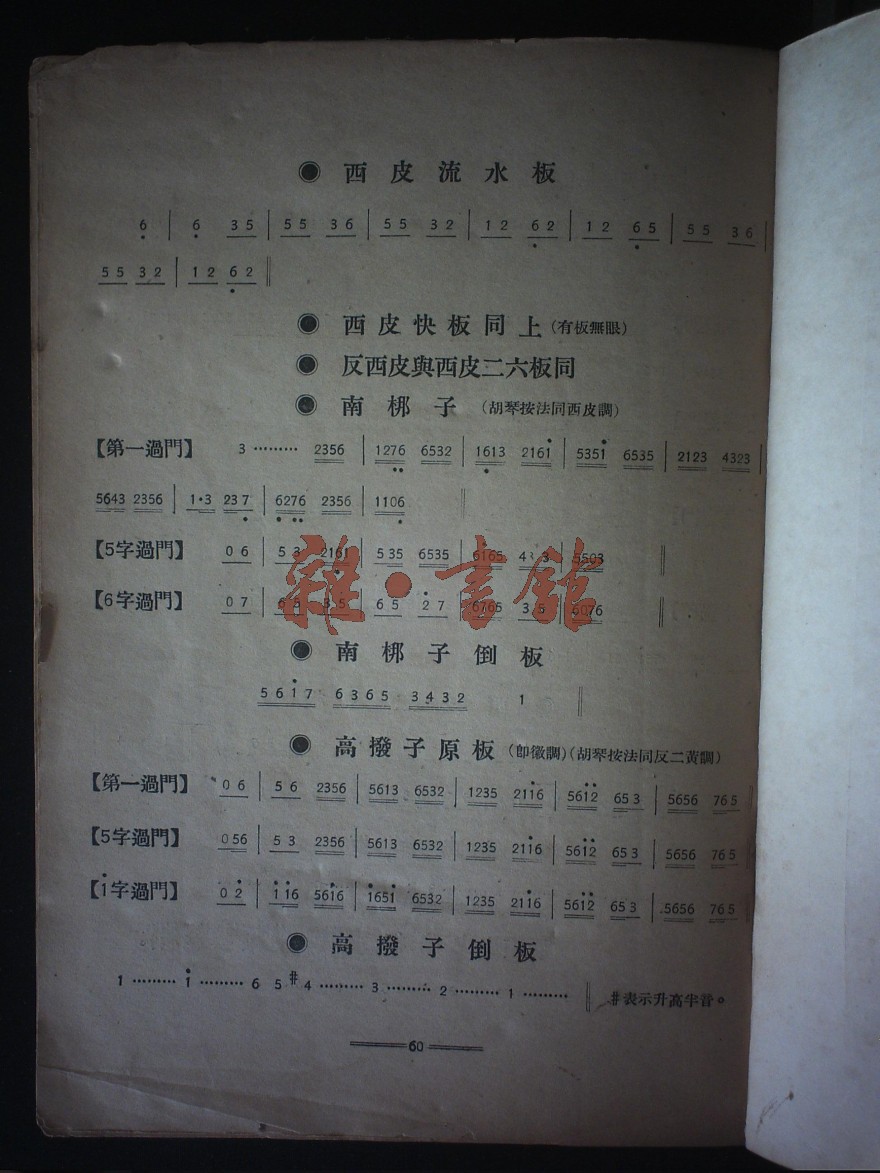 ◉ 西皮流水板
6̣ | 6̣ 35 | 55 36 | 55 32 | 12 6̣2 | 12 6̣5 | 55 36 |
55 32 | 12 6̣2 ‖
◉ 西皮快板同上(有板無眼)
◉ 反西皮與西皮二六板同
◉ 南梆子 (胡琴按法同西皮調)
【第一過門】 3 ········· 2356 | 127̣6̣ 6532 | 16̣13 2161̇ | 5351̇ 6535 | 2123 4323 |
5643 2356 | 1·3 237̣ | 6̣27̣6̣ 2356 | 1106̣ ‖
【5字過門】 06 | 53 2161 | 535 6535 | 6165 | 5503 ‖
【6字過門】 07 | 65 35 | 65 2̇7 | 6765 35 | 6076 ‖
◉ 南梆子倒板
561̇7 6365 3432 1 ‖
◉ 高撥子原板 (卽徽調)(胡琴按法同反二黃調)
【第一過門】 06 | 56 2356 | 5613 6532 | 1235 21̇1̇6 | 561̇2̇ 653 | 5656 765
【5字過門】 056 | 53 2356 | 5613 6532 | 1235 211̇6 | 561̇2̇ 653 | 5656 765
【1̇字過門】 02̇ | 1̇1̇6 561̇6 | 1̇651̇ 6532 | 1235 211̇6 | 561̇2̇ 653 | 5656 765
◉ 高撥子倒板
1 ········· 1̇ ········· 6 5 #4 ········· 3 ········· 2 ········· 1 ········· ‖ #表示升高半音。
60
雜·書館